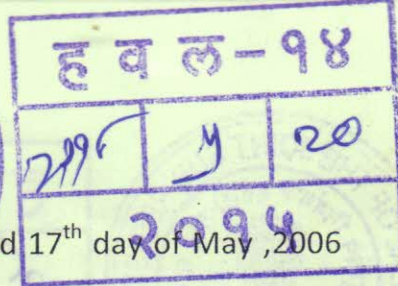 ह व ल - १४
५ २०
२०१५
d 17th day of May ,2006